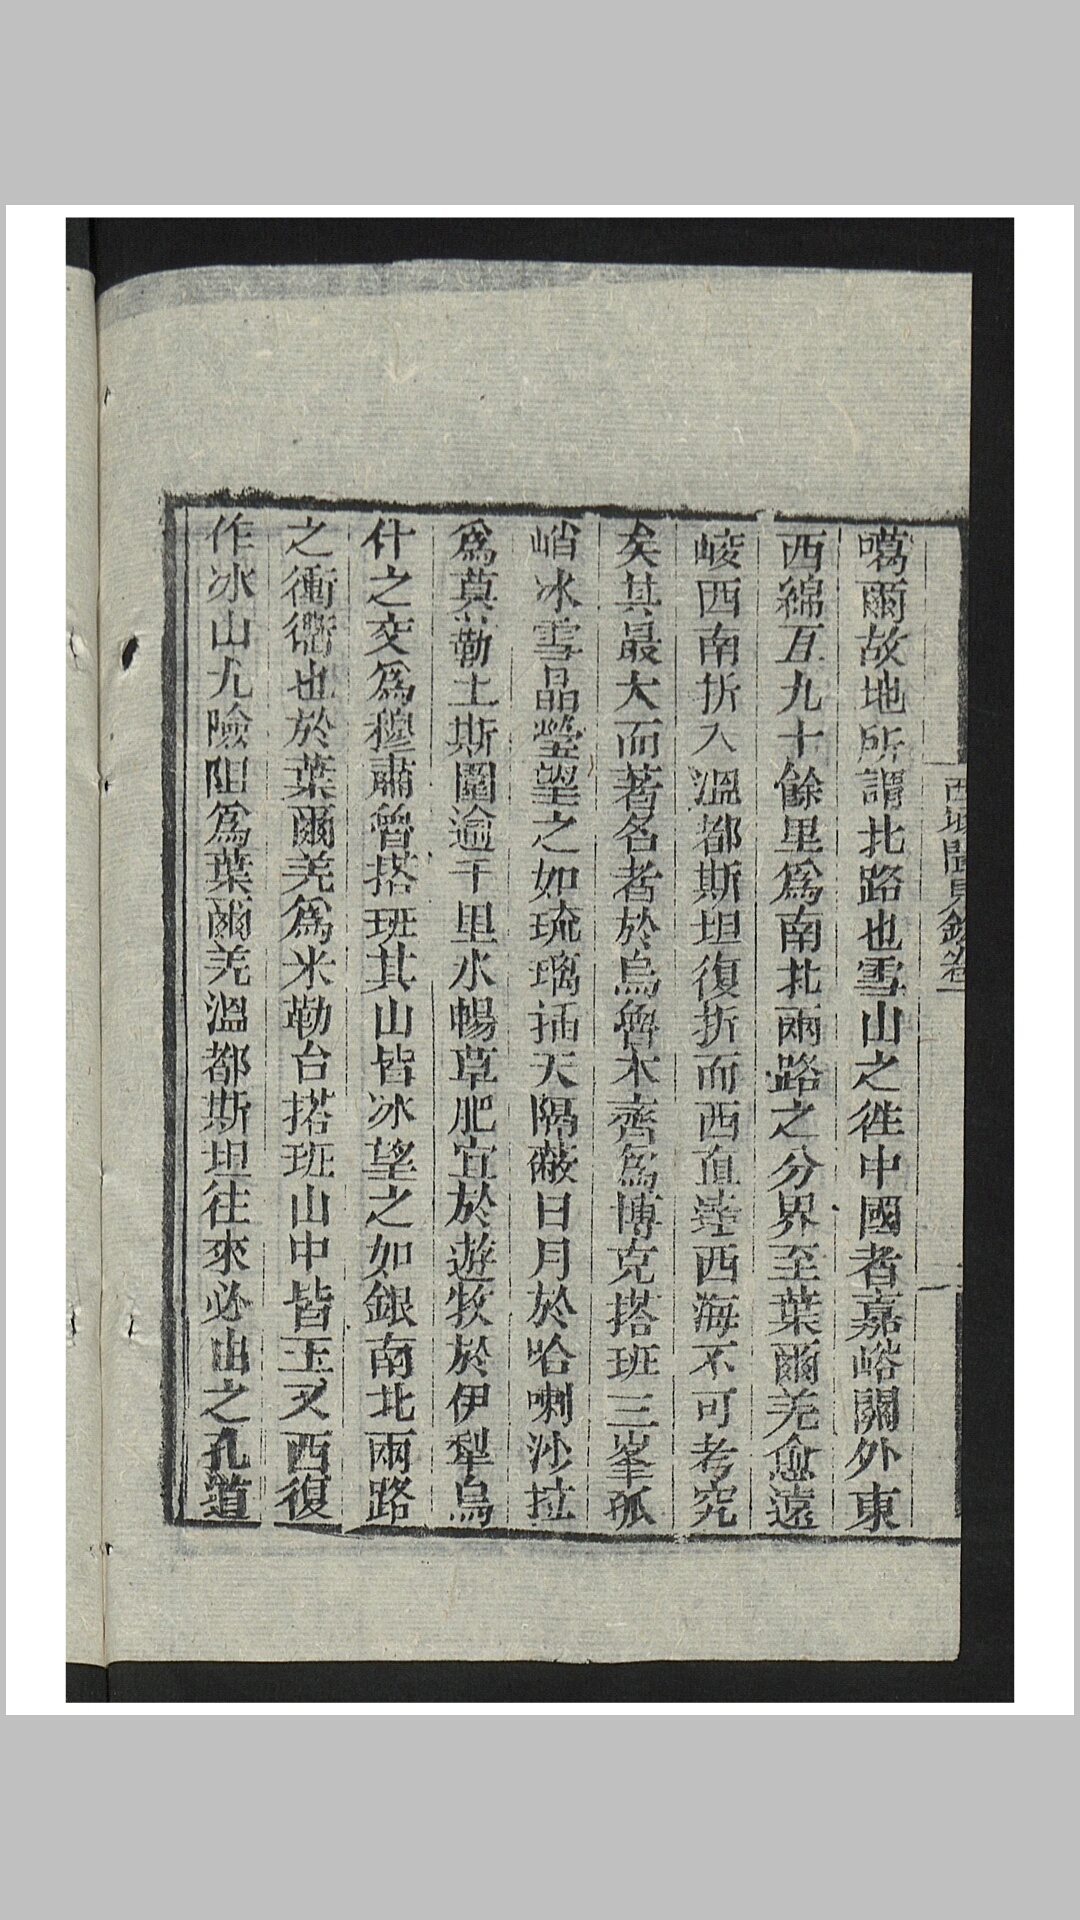 噶爾故地所謂北路也雪山之徃中國者嘉峪關外東
西綿亙九十餘里爲南北兩路之分界至葉爾羌愈遠
崚西南折入溫都斯坦復折而西直達西海不可考究
矣其最大而著名者於烏魯木齊爲博克搭班三峯孤
峭冰雪晶瑩望之如琉璃揷天隔蔽日月於哈喇沙拉
爲莫勒土斯圍逾千里水暢草肥宜於遊牧於伊犁烏
什之交爲穆肅魯搭班其山皆冰望之如銀南北兩路
之衝衢也於葉爾羌爲米勒台搭班山中皆玉又西復
作冰山尤險阻爲葉爾羌溫都斯坦往來必由之孔道
西域聞見錄卷